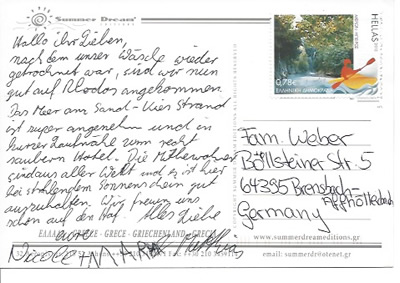 Summer Dream
Editions
Hallo ihr Lieben,
nachdem unser Wäsche wieder
getrocknet war, sind wir nun
gut auf Rhodos angekommen.
Das Meer am Sand-Kies Strand
ist super angenehm und in
kurzer Laufnähe zum recht
saubern Hotel. Die Mitbewohner
sind aus aller Welt und es ist hier
bei strahlendem Sonnenschein gut
auszuhalten. Wir freuen uns
schon auf den Alles Liebe
eure
Nicole
HELLAS
0,78€
ΕΛΛΗΝΙΚΗ ΔΗΜΟΚΡΑΤΙΑ
Fam. Weber
Böllsteiner Str. 5
64395 Brensbach-
Affhöllerbach
Germany
GREECE - GRECE - GRIECHENLAND
www.summerdreameditions.gr
summerdr@otenet.gr